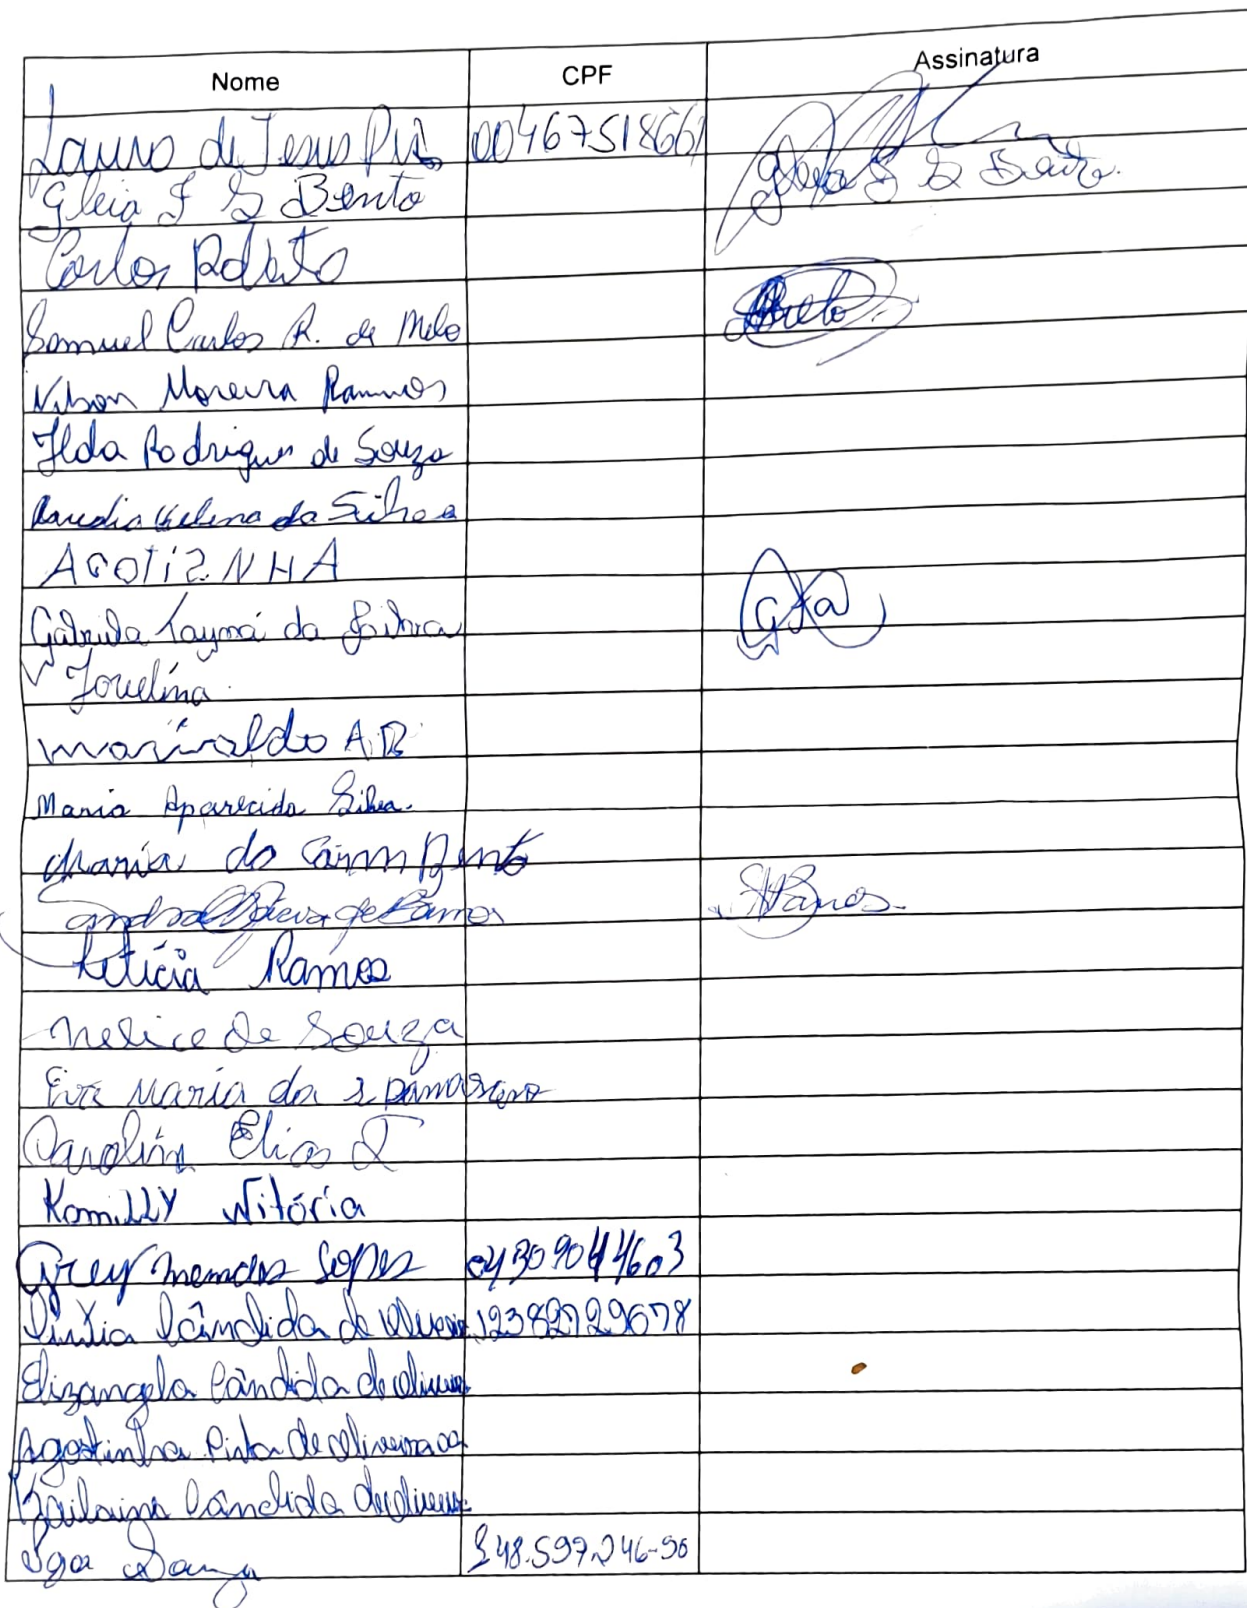 Nome CPF Assinatura
Lauro de Jesus 00467518661
Gleia F G Bento Gleia F G Bento
Carlos Roberto
Samuel Carlos R. de Melo
Nilson Moreira Ramos
Ilda Rodrigues de Souza
Claudia Helena da Silva
Gabriela Tayná da Silva
Jovelina
marivaldo A.B
Maria Aparecida Silva.
Maria do Carm Bento
Sandra de Ramos
Letícia Ramos
Melice de Souza
Eva Maria da
Carolina Elias
Kamilly Vitória
Grey mendes Lopes 04309044603
Cintia Cândida de Oliveira 12382729678
Elizangela Cândida de Oliveira
Agostinha Pinto de Oliveira
Cândida de Oliveira